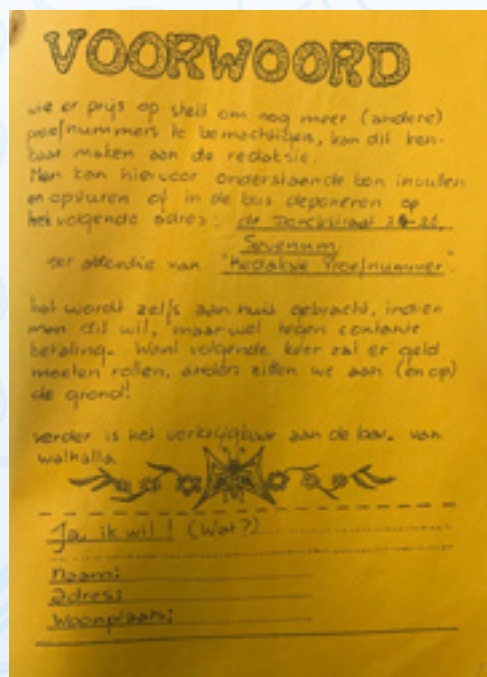 VOORWOORD
wie er prijs op stelt om nog meer (andere)
proefnummers te bemachtigen, kan dit ken-
baar maken aan de redaksie.
Men kan hiervoor onderstaande bon invullen
en opsturen of in de bus deponeren op
het volgende adres:
Sevenum,
ter attentie van "Redaksie Proefnummer".
het wordt zelfs aan huis gebracht, indien
men dit wil, maar wel tegen contante
betaling. Want volgende keer zal er geld
moeten rollen, anders zitten we aan (en op)
de grond!
verder is het verkrijgbaar aan de bar. van
walhalla
Ja, ik wil! (Wat?)
Naam:
Adres:
Woonplaats: